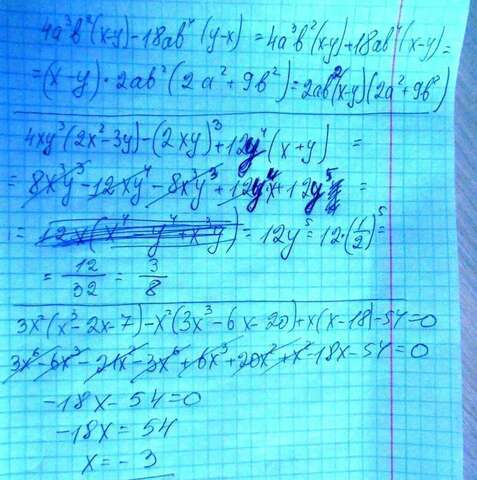 4a³b²(x-y)-18ab⁴(y-x) = 4a³b²(x-y)+18ab⁴(x-y)=
=(x-y)·2ab²(2a²+9b²)=2ab²(x-y)(2a²+9b²)
4xy³(2x²-3y)-(2xy)³+12y⁴(x+y) =
= 8x³y³-12xy⁴-8x³y³+12y⁴x+12y⁵ =
= = 12y⁵=12·(1/2)⁵=
= 12/32 = 3/8
3x²(x³-2x-7)-x²(3x³-6x-20)+x(x-18)-54=0
3x⁶-6x³-21x²-3x⁶+6x³+20x²+x²-18x-54=0
-18x-54=0
-18x=54
x=-3